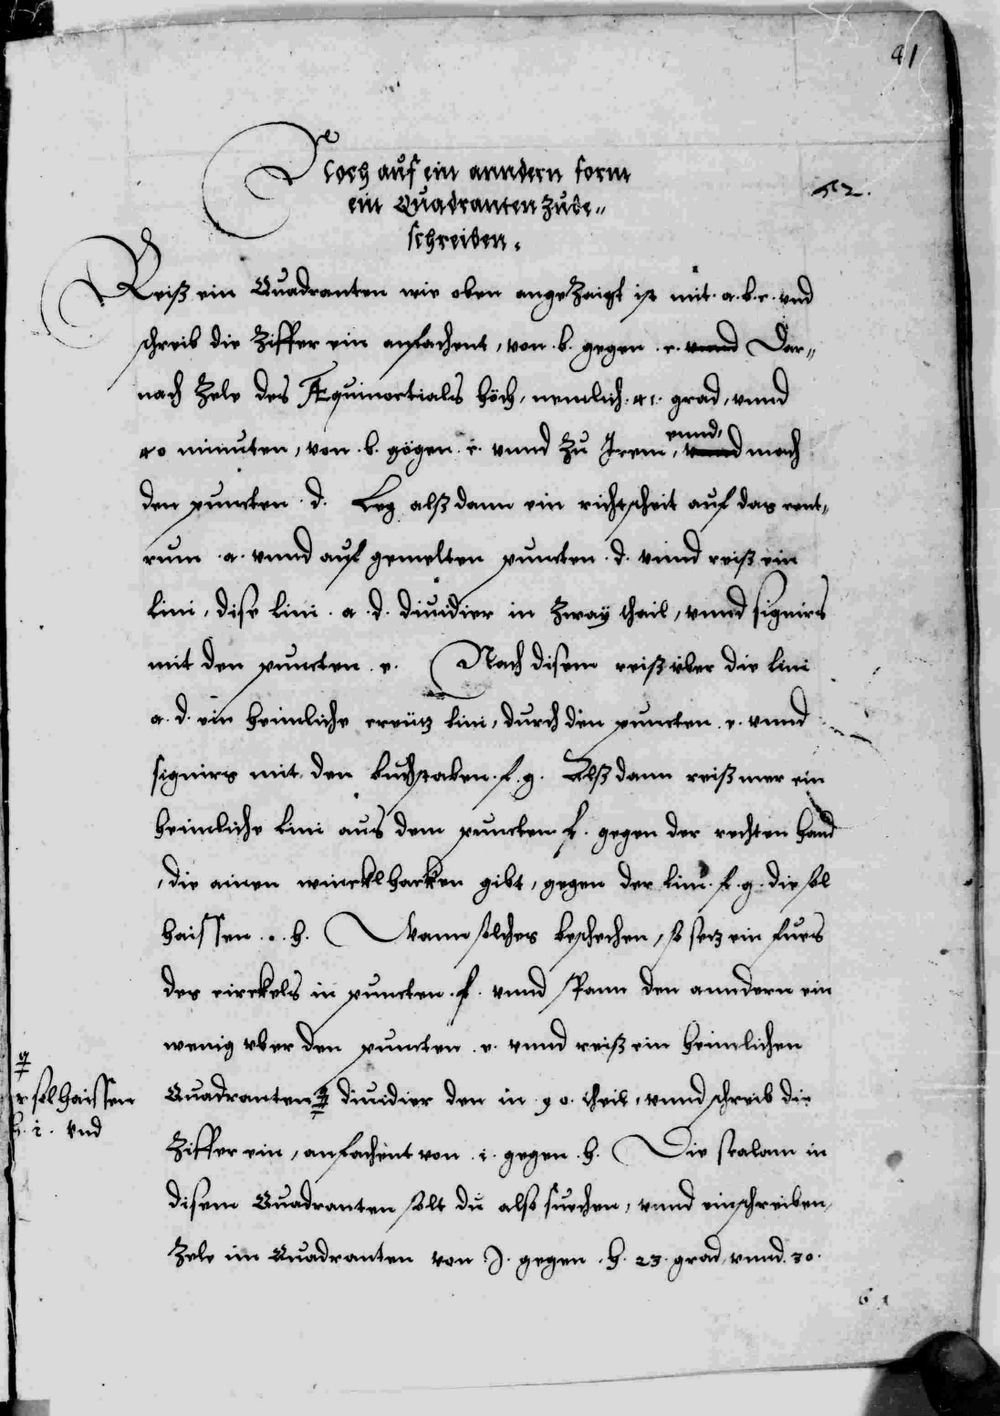 91
Noch auf ein anndern form
ein Quadranten zube„
schreiben.
52.
Reiß ein Quadranten wie oben angezaigt ist mit a. b. c. vnd
schreib die Ziffer ein anfachent, von b. gegen c. vnnd Dar„
nach Zele des Æquinoctials höch, nemlich 41. grad, vnnd
40 minuten, von b. gögen c. vnnd zu Irem, vnnd, vnnd mach
den puncten d. Leg alß dann ein richtscheit auf das cent„
rum a. vnnd auf gemelten puncten d. vnnd reiß ein
lini, dise lini a. d. diuidier in zway thail, vnnd signirs
mit den puncten e. Nach disem reiß über die lini
a. d. ein heimliche creütz lini, durch den puncten e. vnnd
signirs mit den buchstaben f. g. Alß dann reiß mer ein
heimliche lini aus dem puncten f. gegen der rechten hand
, die ainen winckelhacken gibt, gegen der lini f. g. die sol
haissen h. Wann solches beschehen, so setz ein fues
des circkels in puncten f. vnnd spann den anndern ein
wenig vber den puncten e. vnnd reiß ein heimlichen
Quadranten diuidier den in 90. theil, vnnd schreib die
r sol haissen
h. i. vnd
Ziffer ein, anfachent von i. gegen h. Die scalam in
disem Quadranten solt du also suechen, vnnd einschreiben,
Zele im Quadranten von J. gegen h. 23. grad vnnd 30.
61